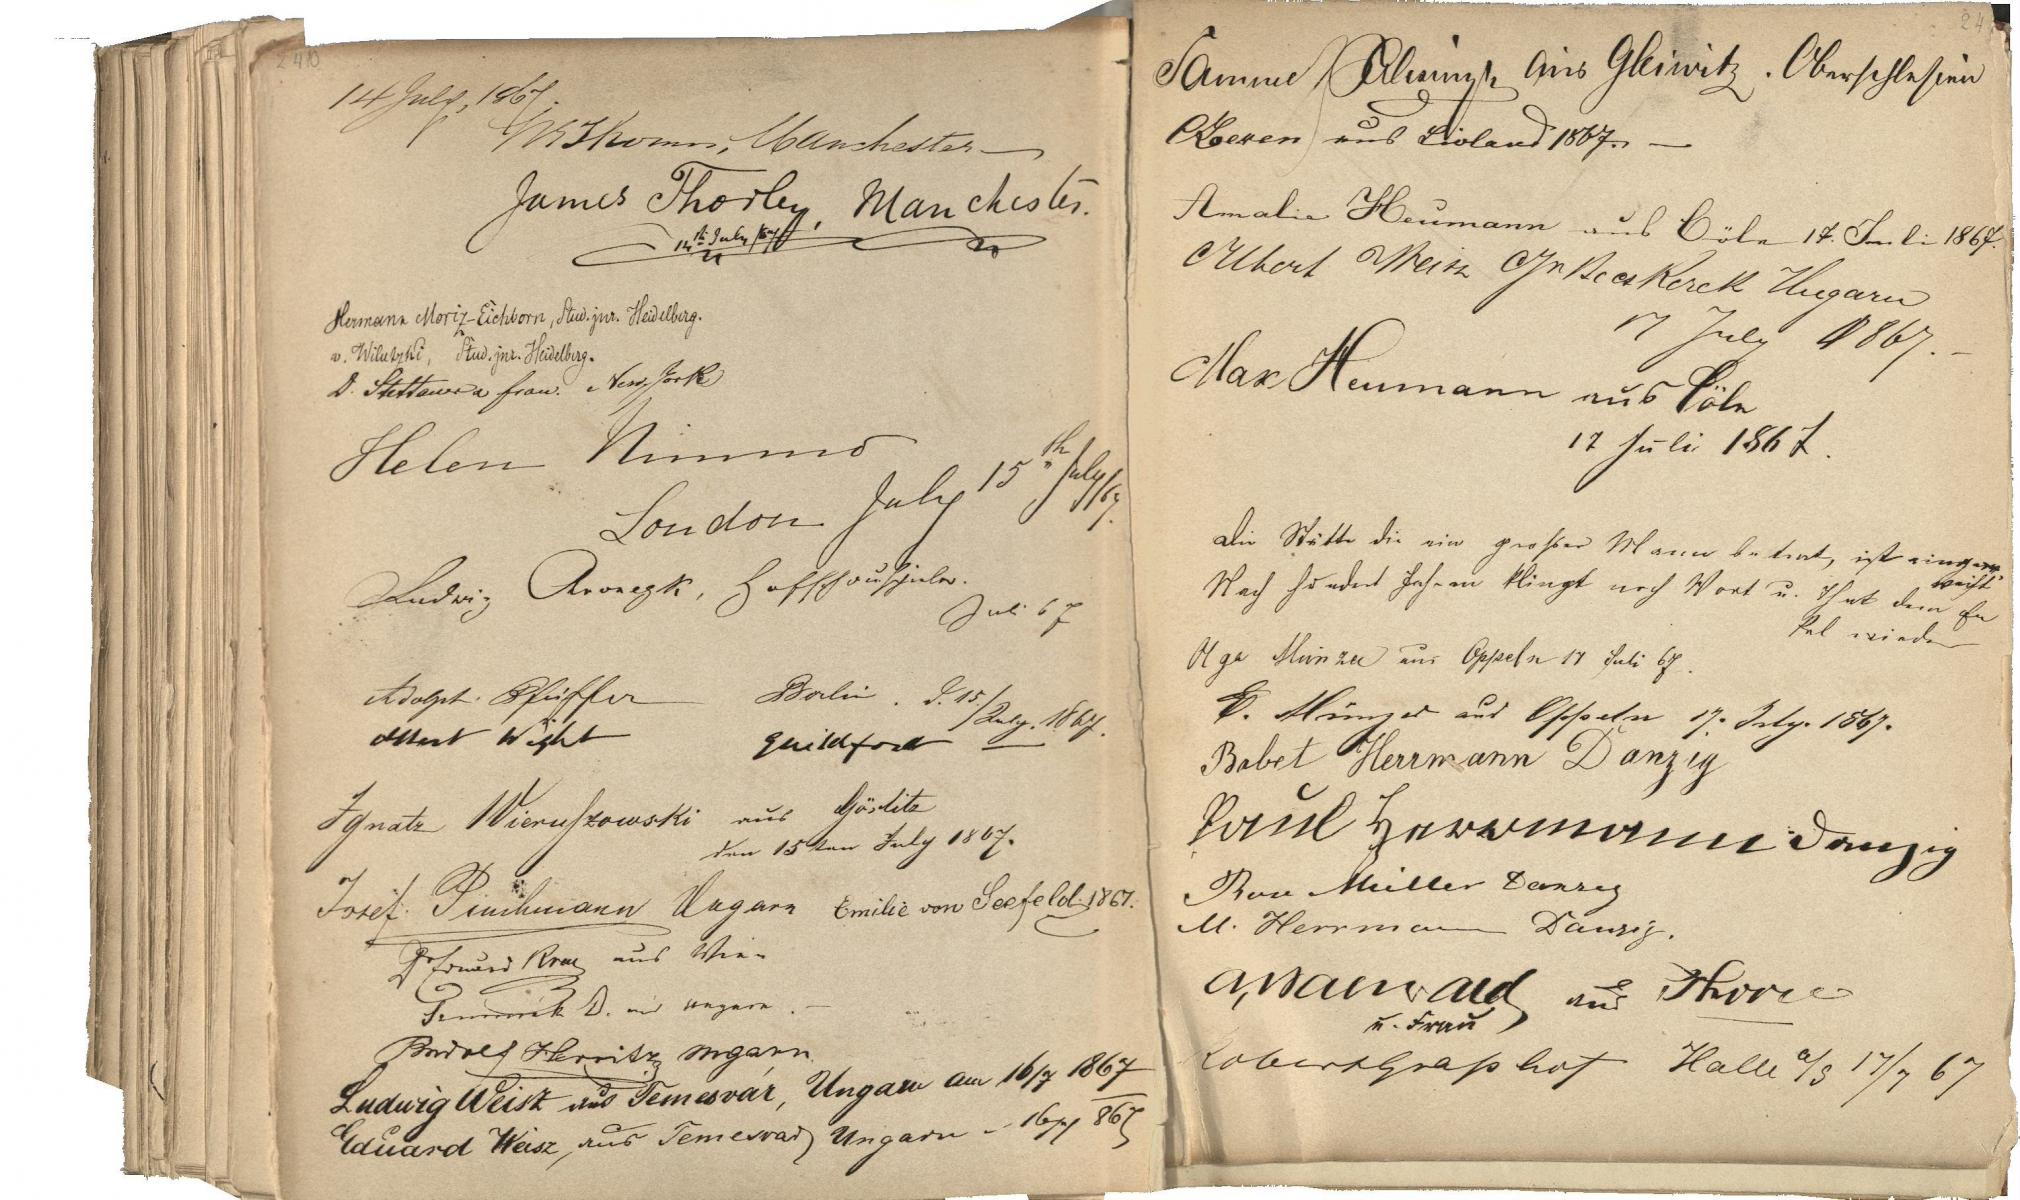 240
14 July, 1867.
Thomm, Manchester
James Thorley, Manchester.
14th July /67
Hermann Moriz-Eichborn, Stud. jur. Heidelberg.
v. Wilutzki, Stud. jur. Heidelberg.
D. Stettauer u frau. New York
Helen Nimmo
London July 15th July/67.
Ludwig Hofschauspieler.
Juli 67
Adolph Pfeiffer Berlin. d. 15./July. 1867.
Albert Wight Guildford
Ignatz Wieruszowski aus Görlitz
den 15ten July 1867.
Josef Ungarn Emilie von Seefeld. 1867.
Dr Eduard aus Wien
D. aus Ungarn. –
Rudolf Ungarn
Ludwig Weisz aus Temesvár, Ungarn am 16/7 1867
Eduard Weisz, aus Temesvar, Ungarn – 16/7 867
24
aus Gleiwitz. Oberschlesien
aus Livland 1867. —
Amalie Heumann aus Cöln 17. Juli 1867.
Albert Weisz Ungarn
17 July 1867. –
Max Heumann aus Cöln
17 Juli 1867.
Die Stätte die ein großer Mann betrat, ist eingeweiht
Nach hundert Jahren klingt noch Wort u. That dem Enkel wieder
Olga Münzer aus Oppeln 17 Juli 67.
E. Münzer aus Oppeln 17. July. 1867.
Babet Herrmann Danzig
Paul Herrmann Danzig
Müller Danzig
M. Herrmann Danzig.
aus Thorn
u. Frau
Halle a/S 17/7 67